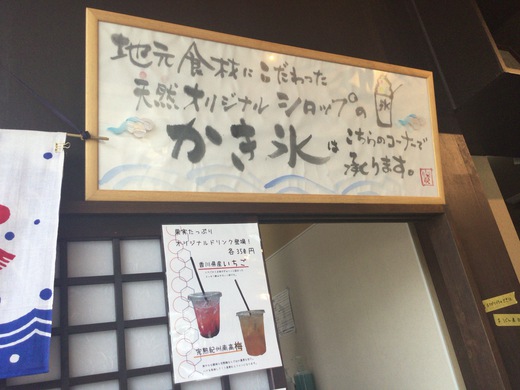 地元食材にこだわった
天然オリジナルシロップの
氷
かき氷はこちらのコーナーで
承ります。
果実たっぷり
オリジナルドリンク登場!
各350円
香川県産いちご
完熟紀州南高梅